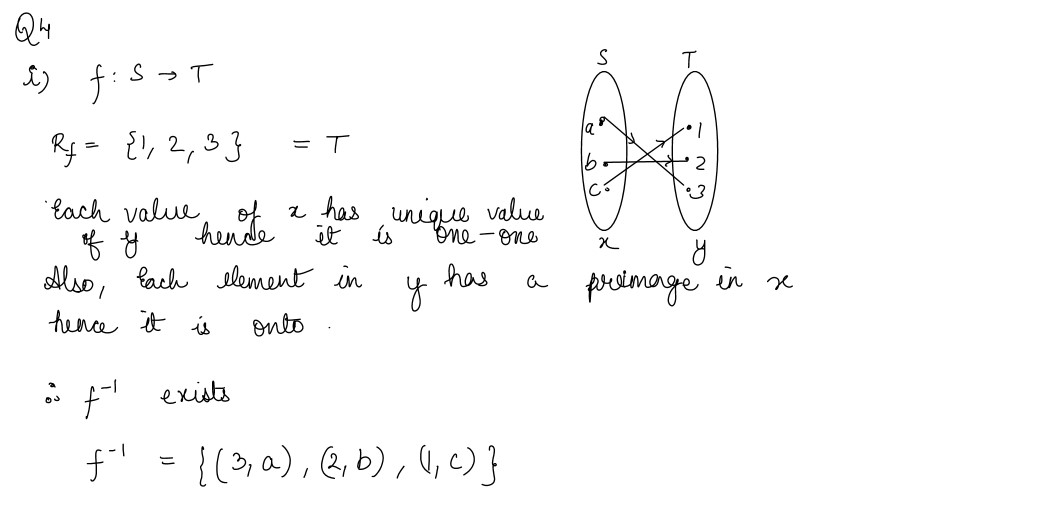 Q4
i) f : S → T
S T
a 1
b 2
c 3
x y
Rf = {1, 2, 3} = T
Each value of x has unique value
of y hence it is one-one
Also, Each element in y has a preimage in x
hence it is onto.
∴ f⁻¹ exists
f⁻¹ = {(3, a), (2, b), (1, c)}